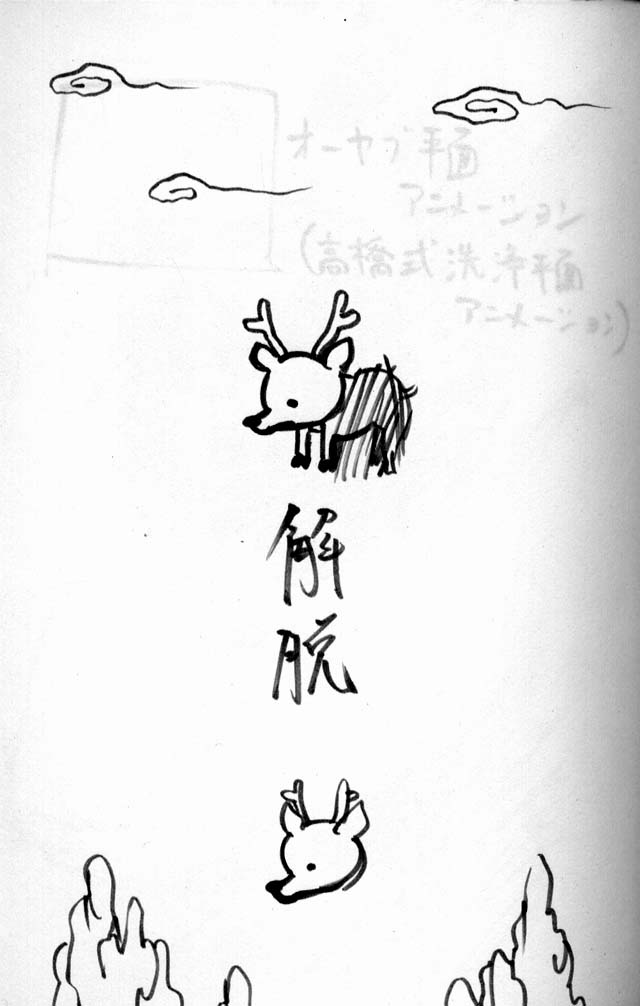 オーヤブ平面
アニメーション
(高橋式洗浄平面
アニメーション)
解
脱